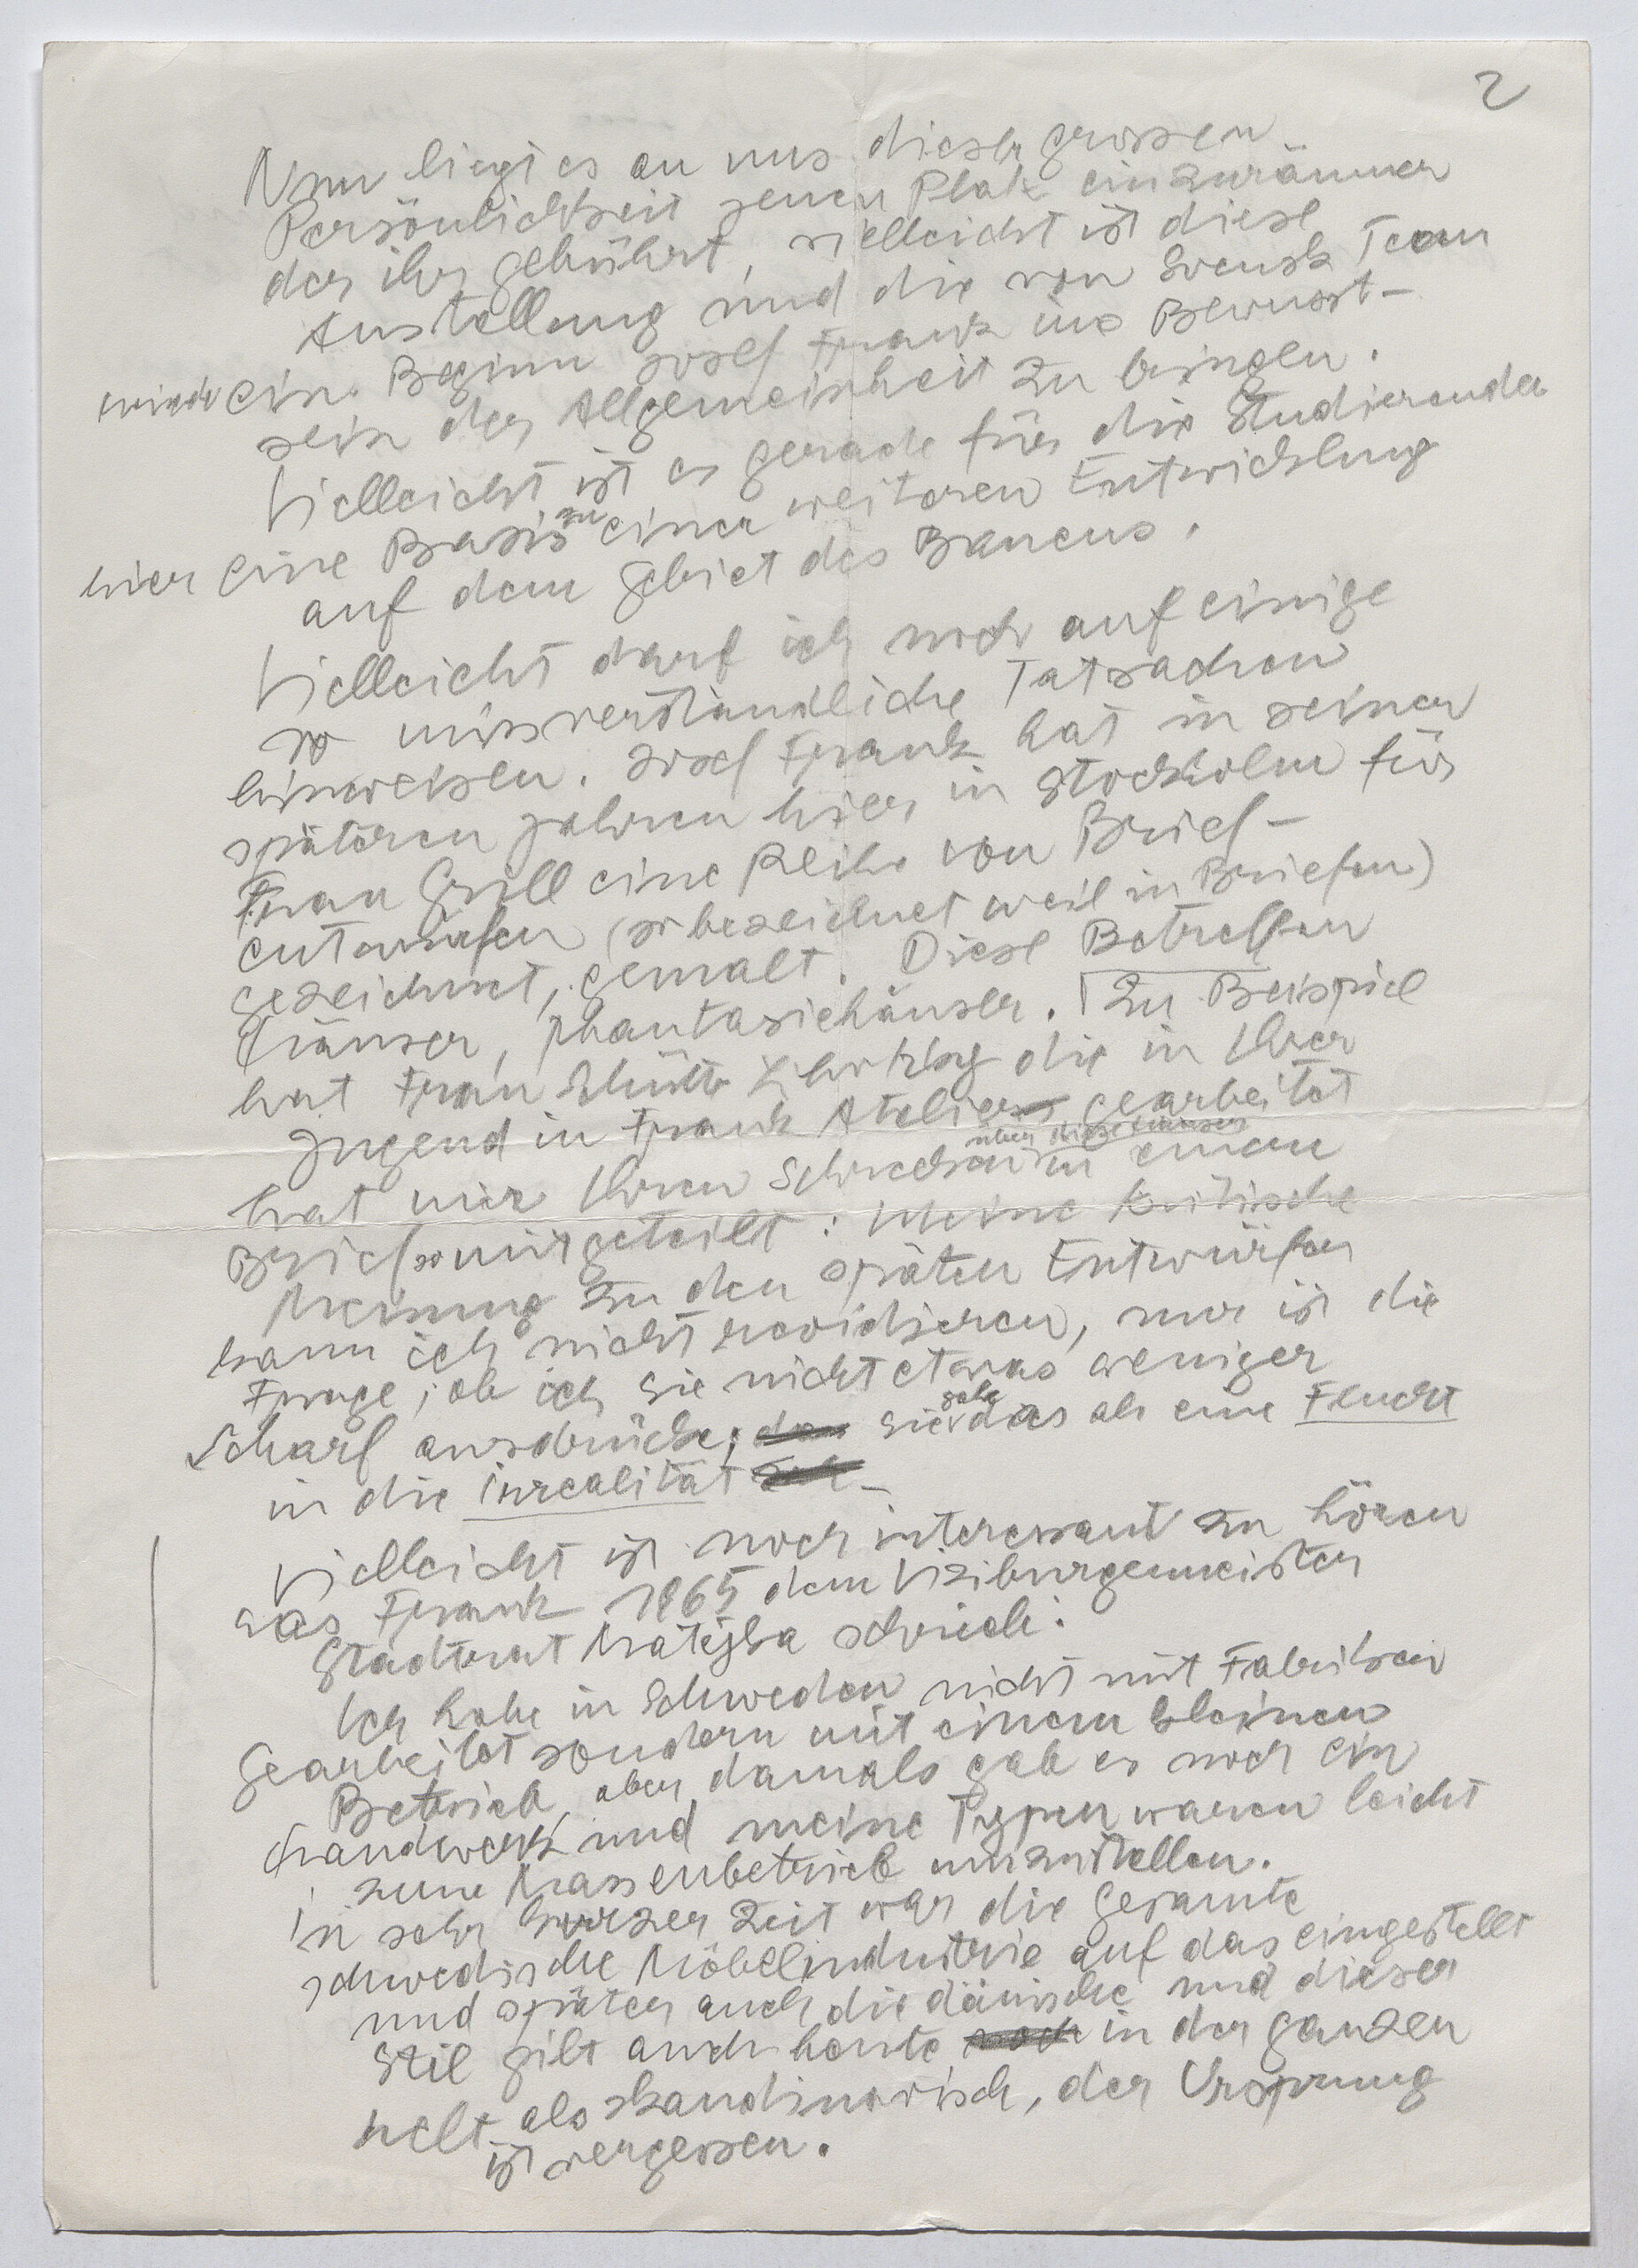 2
Nun liegt es an uns dieser grossen
Persönlichkeit jenen Platz einzuräumen
der ihr gebührt, vielleicht ist diese
Austellung und die von Svensk Team
wieder ein Beginn Josef Frank ins Bewusst-
sein der Allgemeinheit zu bringen.
Vielleicht ist es gerade für die Studierenden
hier eine Basis zu einer weiteren Entwicklung
auf dem Gebiet des Bauens.
Vielleicht darf ich noch auf einige
so missverständliche Tatsachen
hinweisen. Josef Frank hat in seinen
späteren Jahren hier in Stockholm für
Frau Grill eine Reihe von Brief-
entwürfen (so bezeichnet weil in Briefen)
gezeichnet, gemalt. Diese Betreffen
Häuser, Phantasiehäuser. Zu Beispiel
hat Frau Schütte Lihotzky die in Ihrer
Jugend in Frank Atelier gearbeitet
hat mir Ihren Schrecken über diese Häuser in einem
Brief so mitgeteilt: Meine kritische
Meinung zu den späten Entwürfen
kann ich nicht revidieren, nur ist die
Frage, ob ich sie nicht etwas weniger
scharf ausdrücke, sie sehe das als eine Flucht
in die irrealität
Vielleicht ist noch interessant zu hören
was Frank 1965 dem Vizeburgemeister
Stadtrat Matejka schrieb:
Ich habe in Schweden nicht mit Fabriken
Gearbeitet sondern mit einem kleinen
Betrieb, aber damals gab es noch ein
Handwerk und meine Typen waren leicht
zum Massenbetrieb umzustellen.
In sehr kurzer Zeit war die gesamte
schwedische Möbelindustrie auf das eingestellt
und später auch die dänische und dieser
Stil gilt auch heute in der ganzen
Welt als skandinavisch, der Ursprung
ist vergessen.